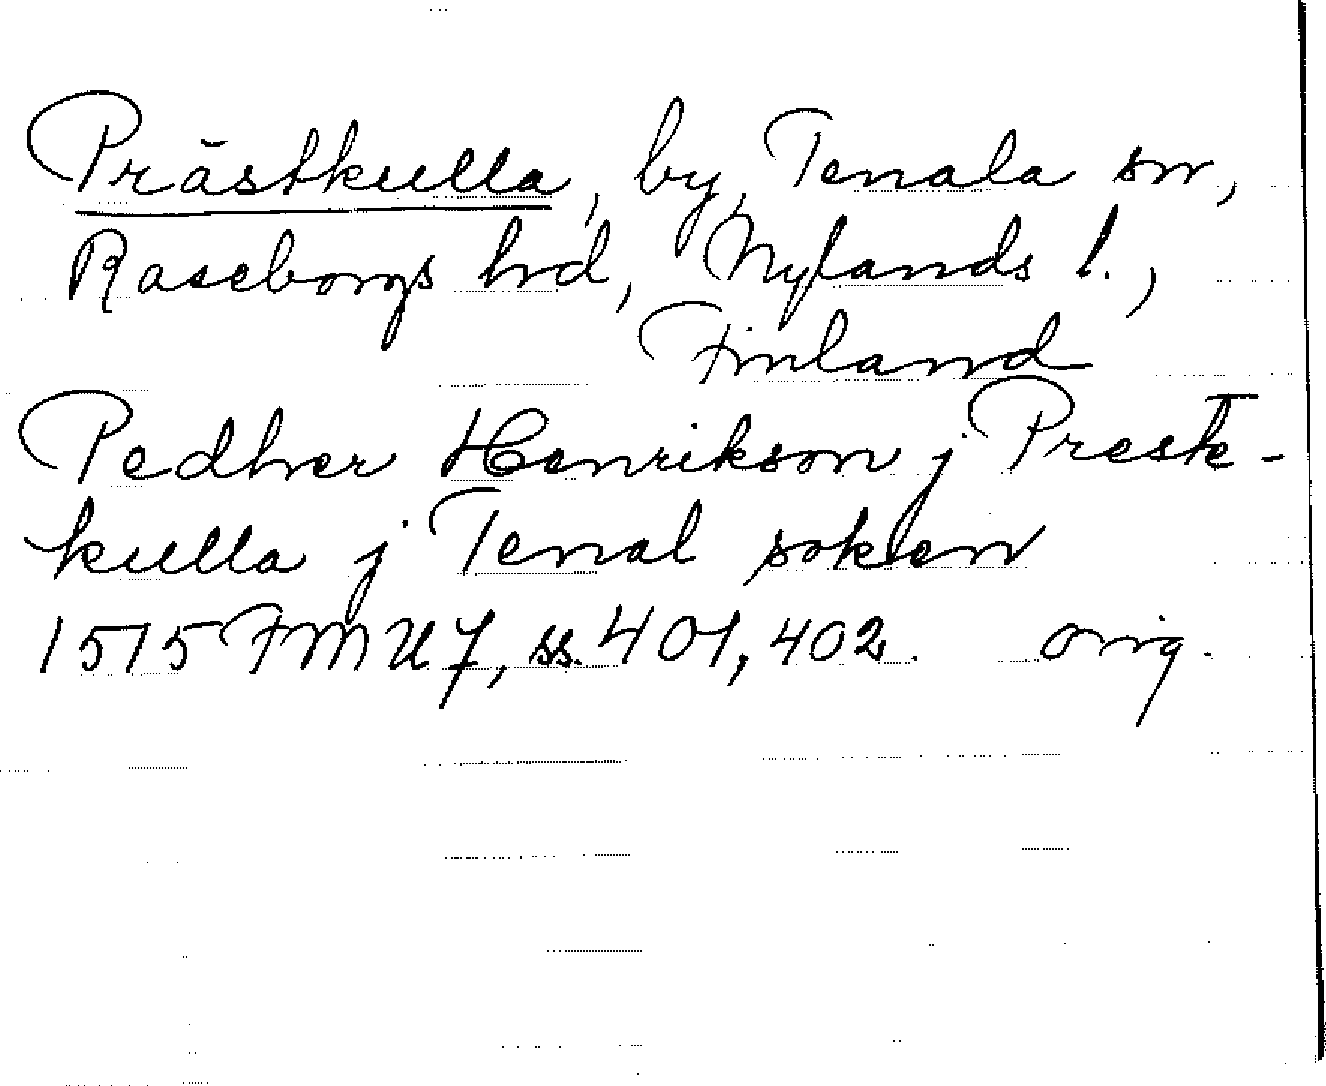 Prästkulla, by, Tenala sn,
Raseborgs hrd, Nylands l.,
Finland
Pedher Henrikson j Prest-
kulla j Tenal soken
1515 FMU 7, ss. 401, 402. orig.